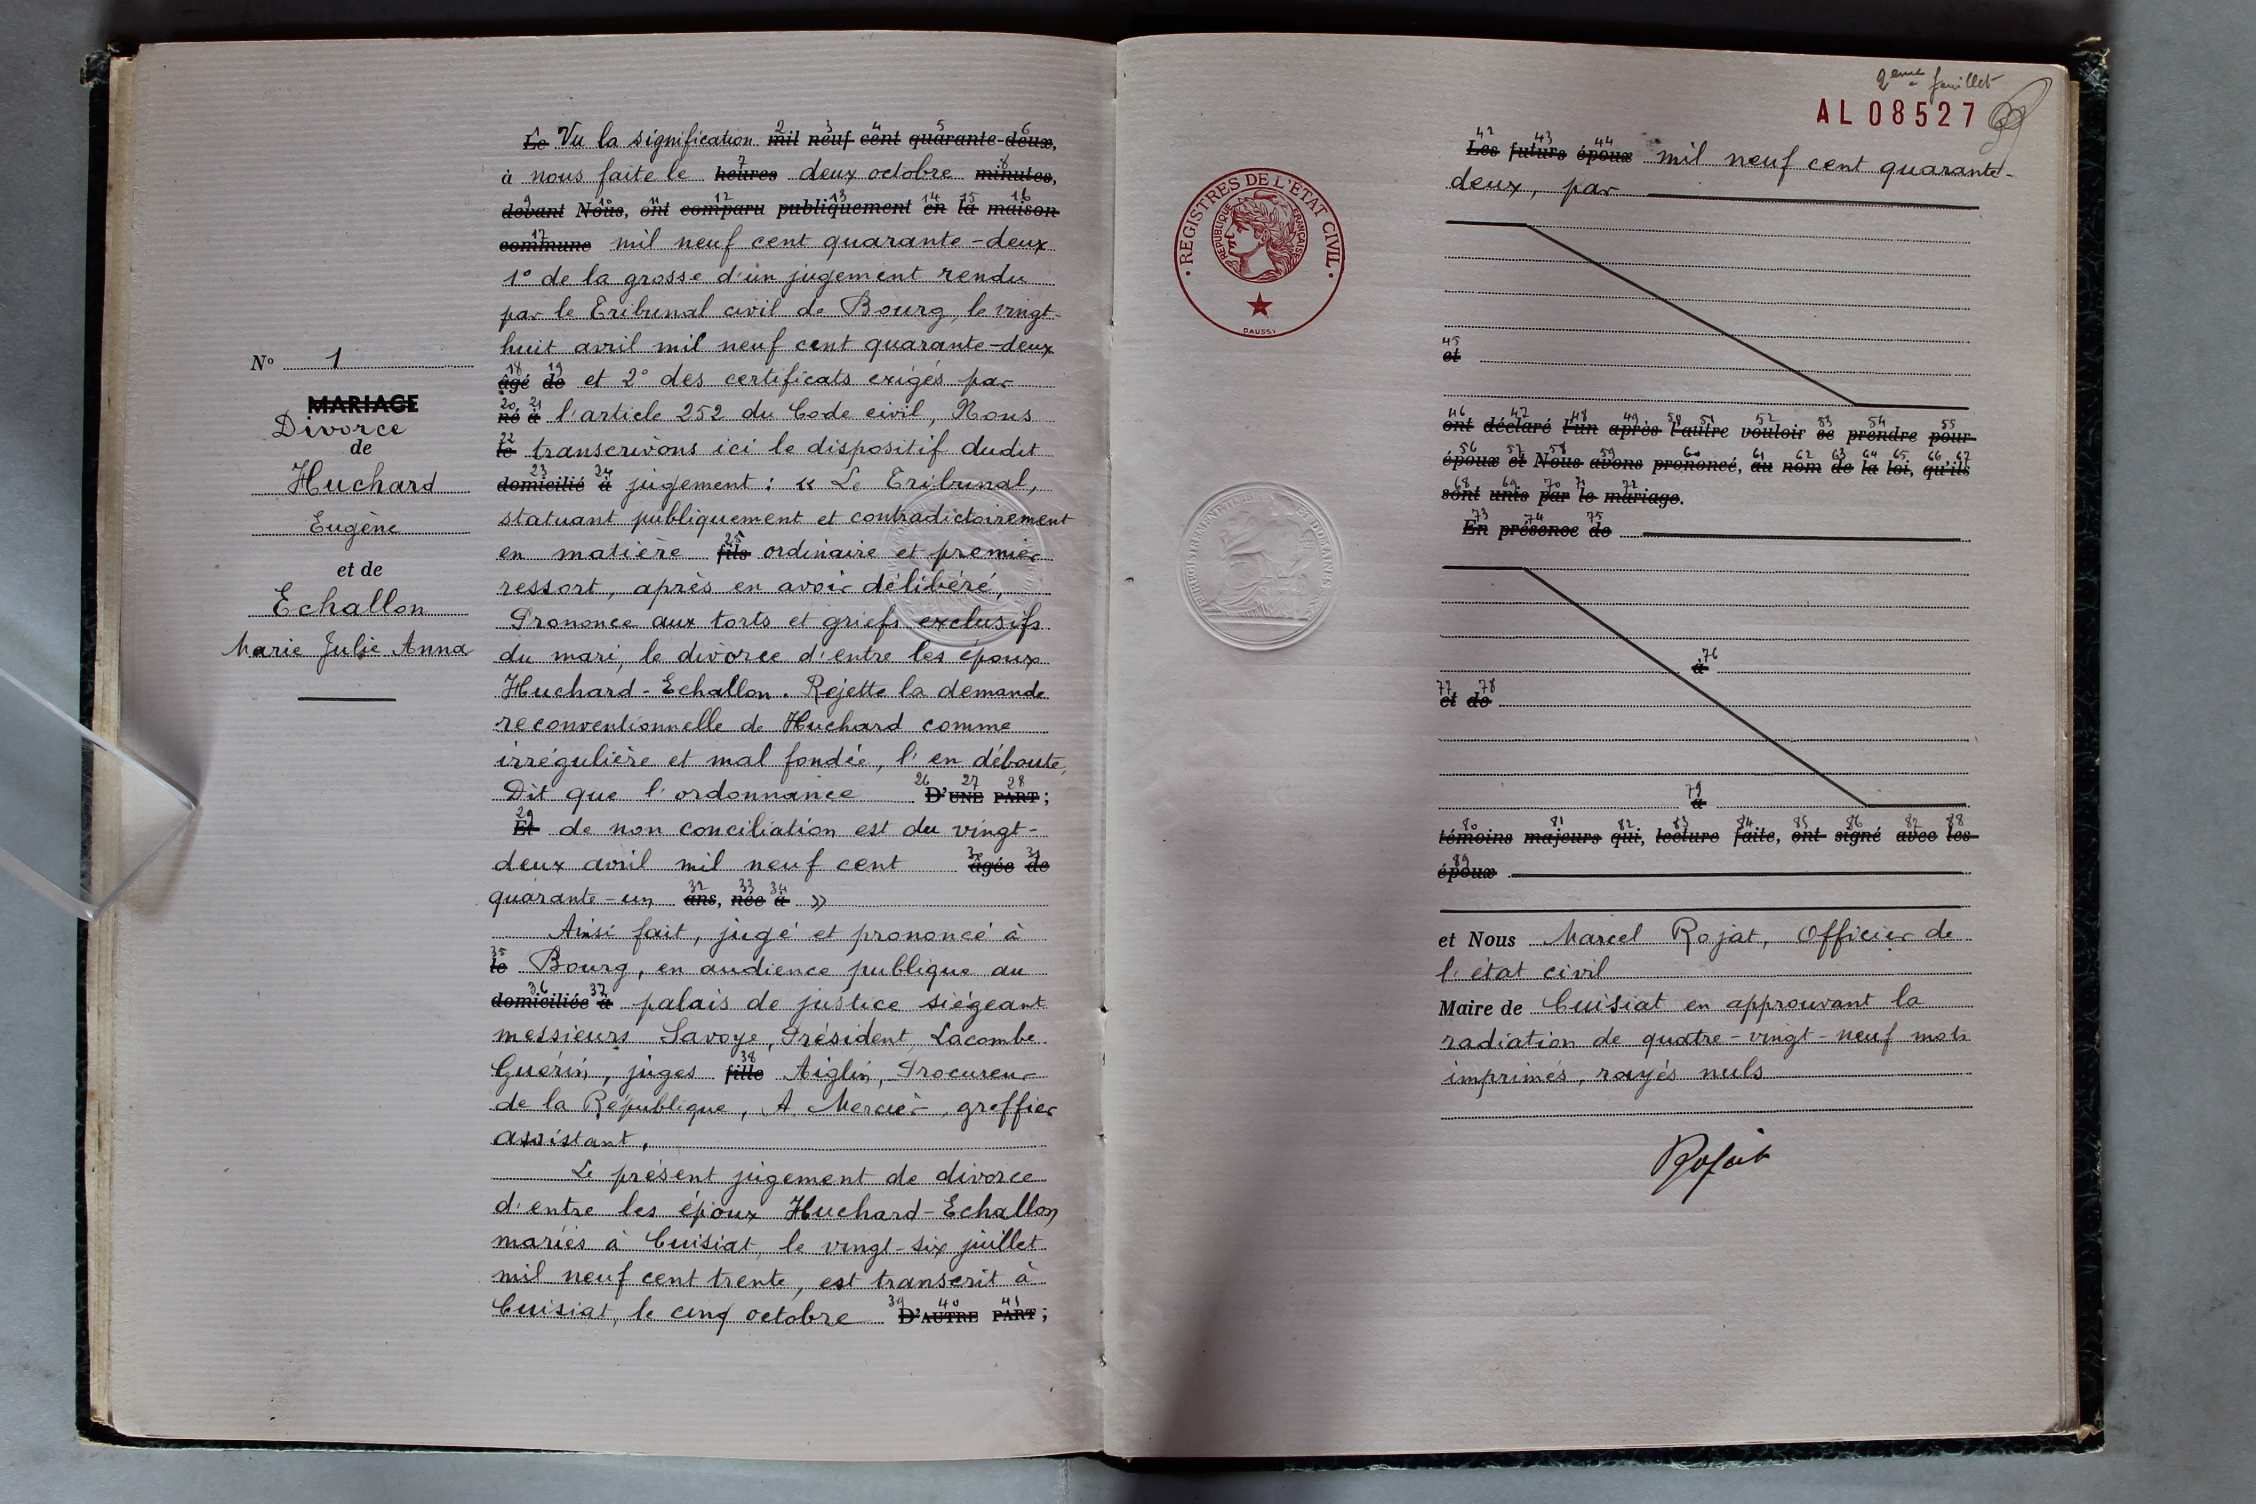 N° 1
MARIAGE
Divorce
de
Huchard
Eugène
et de
Echallon
Marie Julie Anna
Le Vu la signification mil neuf cent quarante-deux,
à nous faite le heures deux octobre minutes,
devant Nous, ont comparu publiquement en la maison
commune mil neuf cent quarante-deux
1° de la grosse d'un jugement rendu
par le Tribunal civil de Bourg, le vingt-
huit avril mil neuf cent quarante-deux
âgé de et 2° des certificats exigés par
né à l'article 252 du Code civil, Nous
le transcrivons ici le dispositif dudit
domicilié à jugement : « Le Tribunal,
statuant publiquement et contradictoirement
en matière fils ordinaire et premier
ressort, après en avoir délibéré,
Prononce aux torts et griefs exclusifs
du mari, le divorce d'entre les époux
Huchard-Echallon. Rejette la demande
reconventionnelle de Huchard comme
irrégulière et mal fondée, l'en déboute,
Dit que l'ordonnance D'UNE PART ;
Et de non conciliation est du vingt-
deux avril mil neuf cent âgée de
quarante-un ans, née à »
Ainsi fait, jugé et prononcé à
le Bourg, en audience publique au
domiciliée à palais de justice siégeant
messieurs Savoye, Président, Lacombe
Guérin, juges fille Aiglin, Procureur
de la République, A. Mercier, greffier
assistant.
Le présent jugement de divorce
d'entre les époux Huchard-Echallon
mariés à Cuisiat, le vingt-six juillet
mil neuf cent trente, est transcrit à
Cuisiat, le cinq octobre D'AUTRE PART ;
2eme feuillet
AL 08527
REGISTRES DE L'ÉTAT CIVIL
RÉPUBLIQUE FRANÇAISE
DAUSSY
Les futurs époux mil neuf cent quarante-
deux, par
et
ont déclaré l'un après l'autre vouloir se prendre pour
époux et Nous avons prononcé, au nom de la loi, qu'ils
sont unis par le mariage.
En présence de
à
et de
à
témoins majeurs qui, lecture faite, ont signé avec les
époux
et Nous Marcel Rojat, Officier de
l'état civil
Maire de Cuisiat en approuvant la
radiation de quatre-vingt-neuf mots
imprimés, rayés nuls
Rojat